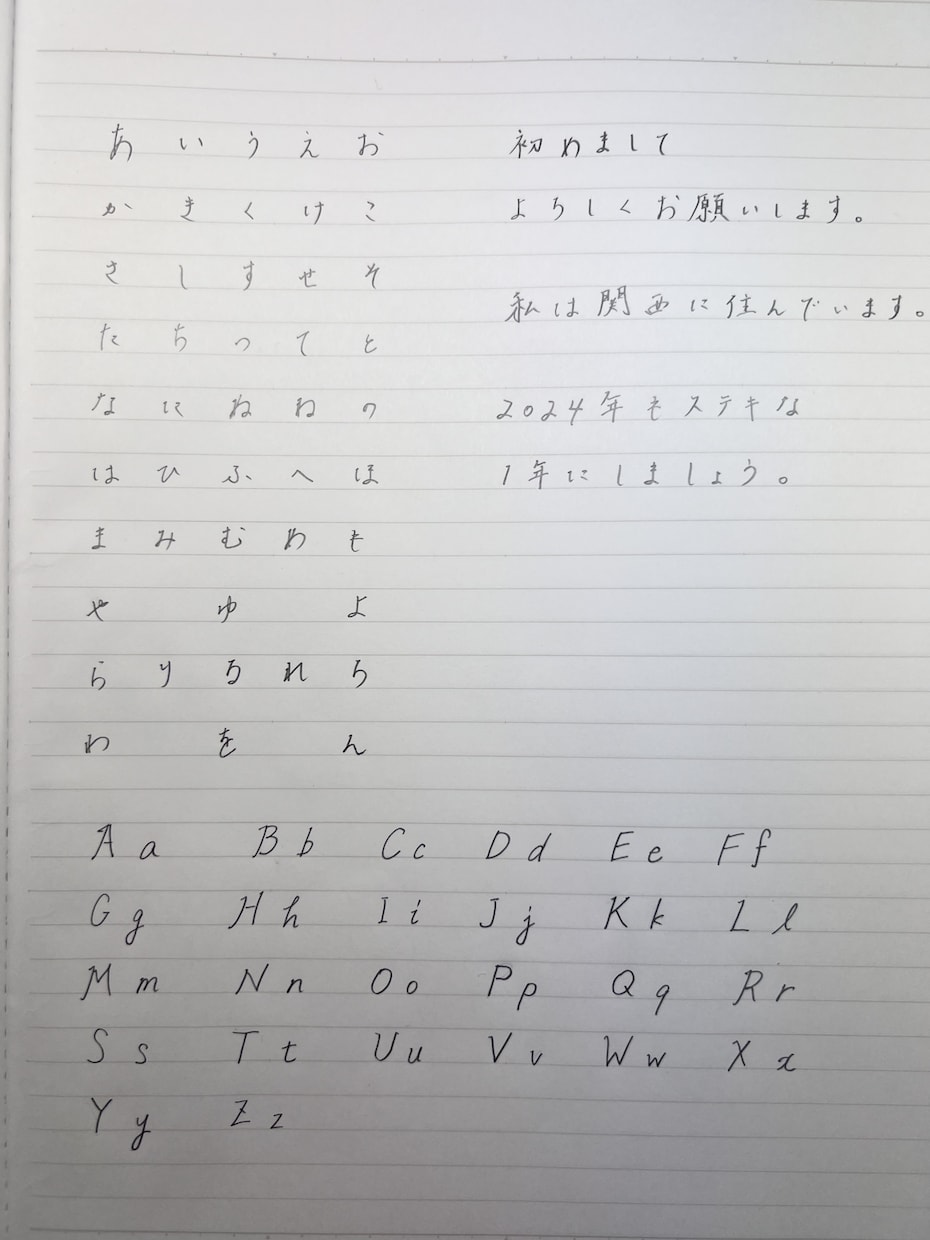 あ い う え お
か き く け こ
さ し す せ そ
た ち つ て と
な に ぬ ね の
は ひ ふ へ ほ
ま み む め も
や ゆ よ
ら り る れ ろ
わ を ん
初めまして
よろしくお願いします。
私は関西に住んでいます。
2024年もステキな
1年にしましょう。
A a B b C c D d E e F f
G g H h I i J j K k L l
M m N n O o P p Q q R r
S s T t U u V v W w X x
Y y Z z